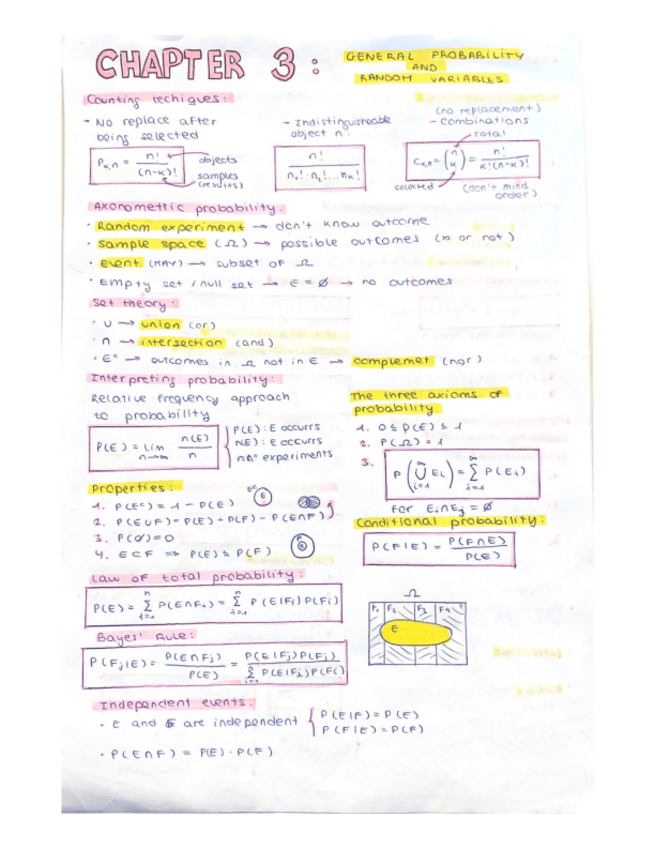 CHAPTER 3: GENERAL PROBABILITY AND RANDOM VARIABLES
Counting techiques:
- No replace after being selected
P_{k,n} = n! / (n-k)!
objects
samples (results)
- Indistinguisheable object n:
n! / n₁! · n₂! ... nₖ!
(no replacement)
- combinations
total
C_{k,n} = (n k) = n! / k!(n-k)!
selected
(don't mind order)
Axonomettic probability:
· Random experiment → don't know outcome
· Sample space (Ω) → possible outcomes (∞ or not)
· Event (MAY) → subset of Ω
· Empty set / null set → E = ∅ → no outcomes
Set theory:
· ∪ → union (or)
· ∩ → intersection (and)
· Eᶜ → outcomes in Ω not in E → complemet (nor)
Interpreting probability:
Relative frequency approach
to probability
P(E) = lim n→∞ n(E) / n
P(E): E occurrs
N(E): E occurrs
experiments
The three axioms of probability
1. 0 ≤ P(E) ≤ 1
2. P(Ω) = 1
3. P(∪ᵢ₌₁^∞ Eᵢ) = Σᵢ₌₁^∞ P(Eᵢ)
for Eᵢ∩Eⱼ = ∅
Properties:
1. P(Eᶜ) = 1 - P(E)
Eᶜ
E
2. P(E∪F) = P(E) + P(F) - P(E∩F)
3. P(∅) = 0
4. E⊂F ⇒ P(E) ≤ P(F)
Conditional probability:
P(F|E) = P(F∩E) / P(E)
Law of total probability:
P(E) = Σᵢ₌₁ⁿ P(E∩Fᵢ) = Σᵢ₌₁ⁿ P(E|Fᵢ)P(Fᵢ)
Ω
F₁ F₂ F₃ F₄
E
Bayes' Rule:
P(Fⱼ|E) = P(E∩Fⱼ) / P(E) = P(E|Fⱼ)P(Fⱼ) / Σᵢ₌₁ⁿ P(E|Fᵢ)P(Fᵢ)
Independent events:
· E and F are independent { P(E|F) = P(E)
P(F|E) = P(F)
· P(E∩F) = P(E) · P(F)